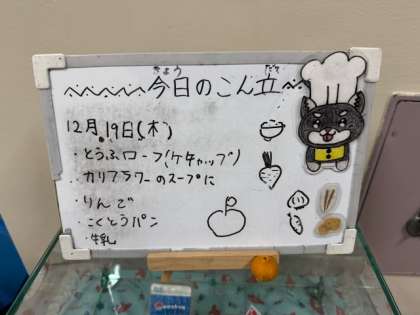 今日のこん立
きょう だて
12月19日(木)
・とうふローフ(ケチャップ)
・カリフラワーのスープに
・りんご
・こくとうパン
・牛乳